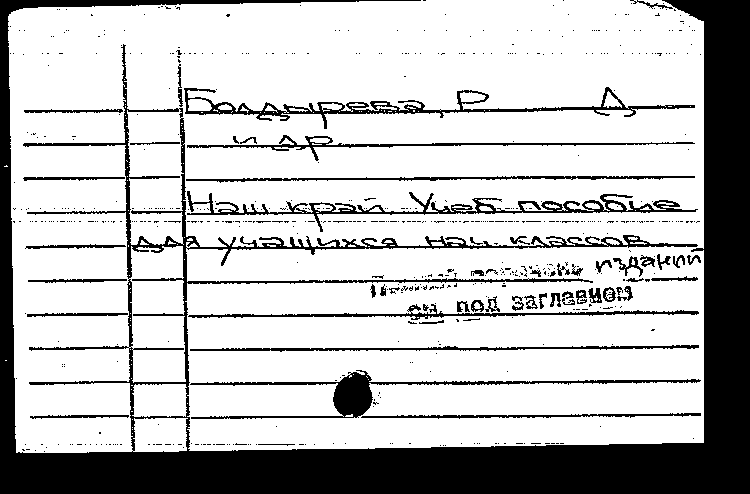 Болдырева, Р Д
и др.
Наш край. Учеб пособие
для учащихся нач классов
Полный перечень изданий
см. под заглавием